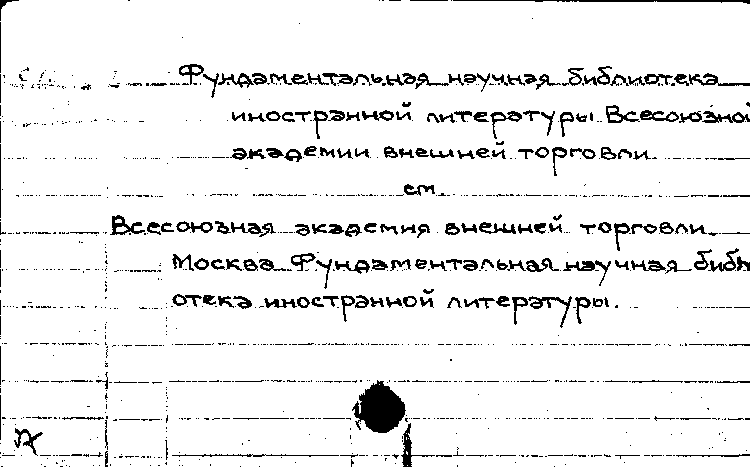 Фундаментальная научная библиотека
иностранной литературы Всесоюзной
академии внешней торговли
см.
Всесоюзная академия внешней торговли.
Москва Фундаментальная научная библи
отека иностранной литературы.